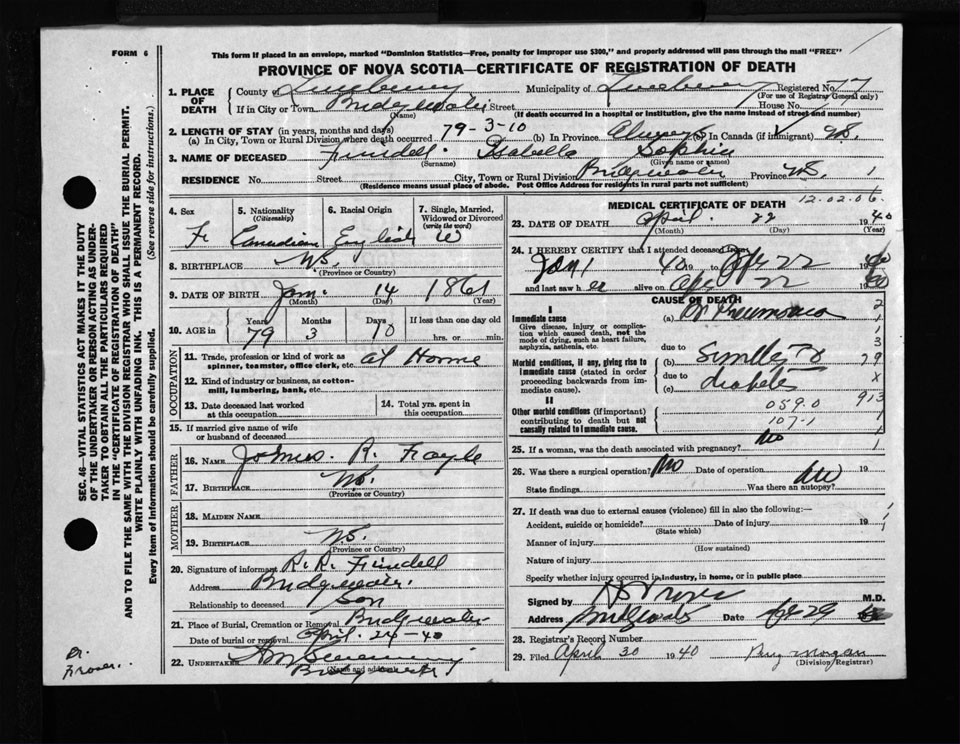 FORM 6
This form if placed in an envelope, marked "Dominion Statistics—Free, penalty for improper use $300," and properly addressed will pass through the mail "FREE"
PROVINCE OF NOVA SCOTIA—CERTIFICATE OF REGISTRATION OF DEATH
SEC. 46—VITAL STATISTICS ACT MAKES IT THE DUTY
OF THE UNDERTAKER OR PERSON ACTING AS UNDER-
TAKER TO OBTAIN ALL THE PARTICULARS REQUIRED
IN THE "CERTIFICATE OF REGISTRATION OF DEATH"
AND TO FILE THE SAME WITH THE DIVISION REGISTRAR WHO SHALL ISSUE THE BURIAL PERMIT.
WRITE PLAINLY WITH UNFADING INK. THIS IS A PERMANENT RECORD.
Every item of Information should be carefully supplied. (See reverse side for instructions.)
1. PLACE OF DEATH County of Lunenburg Municipality of Lunenburg Registered No. 77
(For use of Registrar General only)
If in City or Town Bridgewater Street House No.
(Name) (If death occurred in a hospital or institution, give the name instead of street and number)
2. LENGTH OF STAY (in years, months and days)
(a) In City, Town or Rural Division where death occurred 79-3-10 (b) In Province Always (c) In Canada (if immigrant)
3. NAME OF DECEASED Isabella Sophia
(Surname) (Given name or names)
RESIDENCE No. Street City, Town or Rural Division Bridgewater Province N.S. 1
(Residence means usual place of abode. Post Office Address for residents in rural parts not sufficient)
4. Sex F
5. Nationality (Citizenship) Canadian
6. Racial Origin English
7. Single, Married, Widowed or Divorced (write the word) W
8. BIRTHPLACE N.S.
(Province or Country)
9. DATE OF BIRTH Jan. 14 1861
(Month) (Day) (Year)
10. AGE in Years 79 Months 3 Days 10 If less than one day old
hrs. or min.
OCCUPATION
11. Trade, profession or kind of work as spinner, teamster, office clerk, etc. at Home
12. Kind of industry or business, as cotton-mill, lumbering, bank, etc.
13. Date deceased last worked at this occupation
14. Total yrs. spent in this occupation
15. If married give name of wife or husband of deceased
FATHER
16. NAME James R.
17. BIRTHPLACE N.S.
(Province or Country)
MOTHER
18. MAIDEN NAME
19. BIRTHPLACE N.S.
(Province or Country)
20. Signature of informant R. R.
Address Bridgewater.
Relationship to deceased Son
21. Place of Burial, Cremation or Removal Bridgewater
Date of burial or removal April 24-40
22. UNDERTAKER
(Name and address)
MEDICAL CERTIFICATE OF DEATH
12.02.06
23. DATE OF DEATH April 22 1940
(Month) (Day) (Year)
24. I HEREBY CERTIFY that I attended deceased from
Jan 1 40 19 to Apr 22
and last saw her alive on Apr 22
CAUSE OF DEATH
I
Immediate cause (a) Br Pneumonia 2
Give disease, injury or complication which caused death, not the mode of dying, such as heart failure, asphyxia, asthenia, etc.
due to
Morbid conditions, if any, giving rise to immediate cause (stated in order proceeding backwards from immediate cause). (b) 79
due to
(c) diabetes
II
Other morbid conditions (if important) contributing to death but not causally related to immediate cause.
059.0 913
107-1
25. If a woman, was the death associated with pregnancy? No
26. Was there a surgical operation? No Date of operation 19
State findings Was there an autopsy?
27. If death was due to external causes (violence) fill in also the following:—
Accident, suicide or homicide? Date of injury 19
(State which)
Manner of injury
(How sustained)
Nature of injury
Specify whether injury occurred in industry, in home, or in public place
Signed by M.D.
Address Date 29
28. Registrar's Record Number
29. Filed April 30 1940 Morgan
(Division Registrar)
Dr.